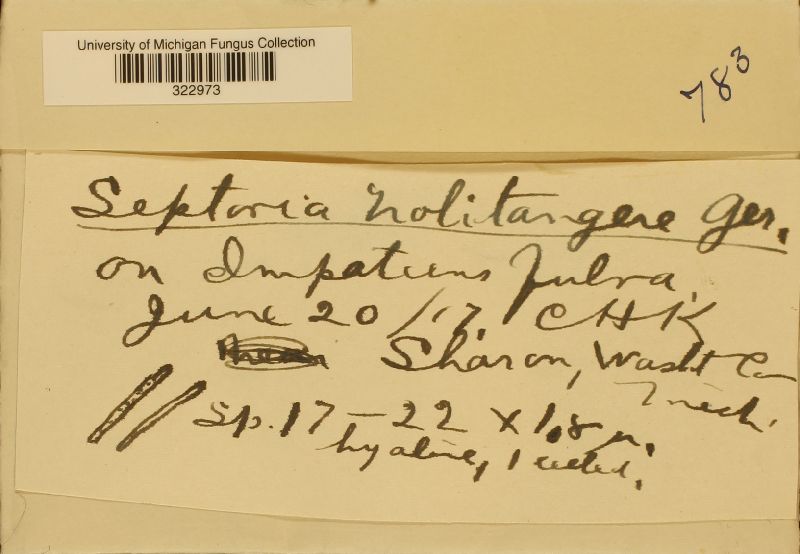 University of Michigan Fungus Collection
322973
783
Septoria nolitangere Ger.
on Impatiens fulva.
June 20/17 CHK
Sharon, Washt Co
Mich.
Sp. 17-22 x 1.8 µ.
hyaline, 1 celled.